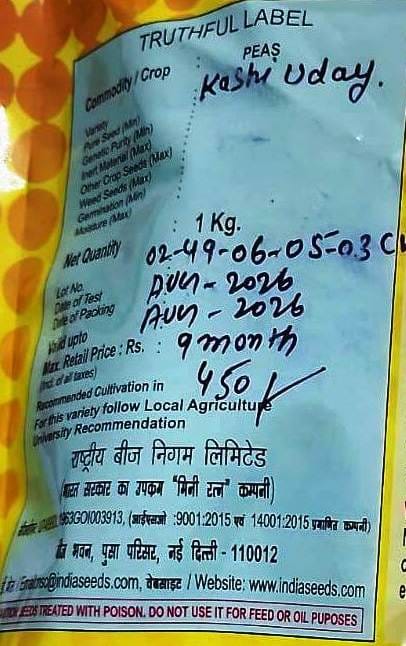 TRUTHFUL LABEL
Commodity / Crop : PEAS
Variety : Kashi Uday.
Pure Seed (Min) :
Genetic Purity (Min) :
Inert Material (Max) :
Other Crop Seeds (Max) :
Weed Seeds (Max) :
Germination (Min) :
Moisture (Max) :
Net Quantity : 1 Kg.
Lot No. 02-49-06-05-03
Date of Test - 2026
Date of Packing : Aug - 2026
Valid upto : 9 month
Max. Retail Price : Rs. : 450/
(Incl. of all taxes)
Recommended Cultivation in
For this variety follow Local Agriculture
University Recommendation
राष्ट्रीय बीज निगम लिमिटेड
(भारत सरकार का उपक्रम "मिनी रत्न" कम्पनी)
1963GOI003913, (आईएसओ :9001:2015 एवं 14001:2015 प्रमाणित कम्पनी)
बीज भवन, पूसा परिसर, नई दिल्ली - 110012
nsc@indiaseeds.com, वेबसाइट / Website: www.indiaseeds.com
SEEDS TREATED WITH POISON. DO NOT USE IT FOR FEED OR OIL PUPOSES